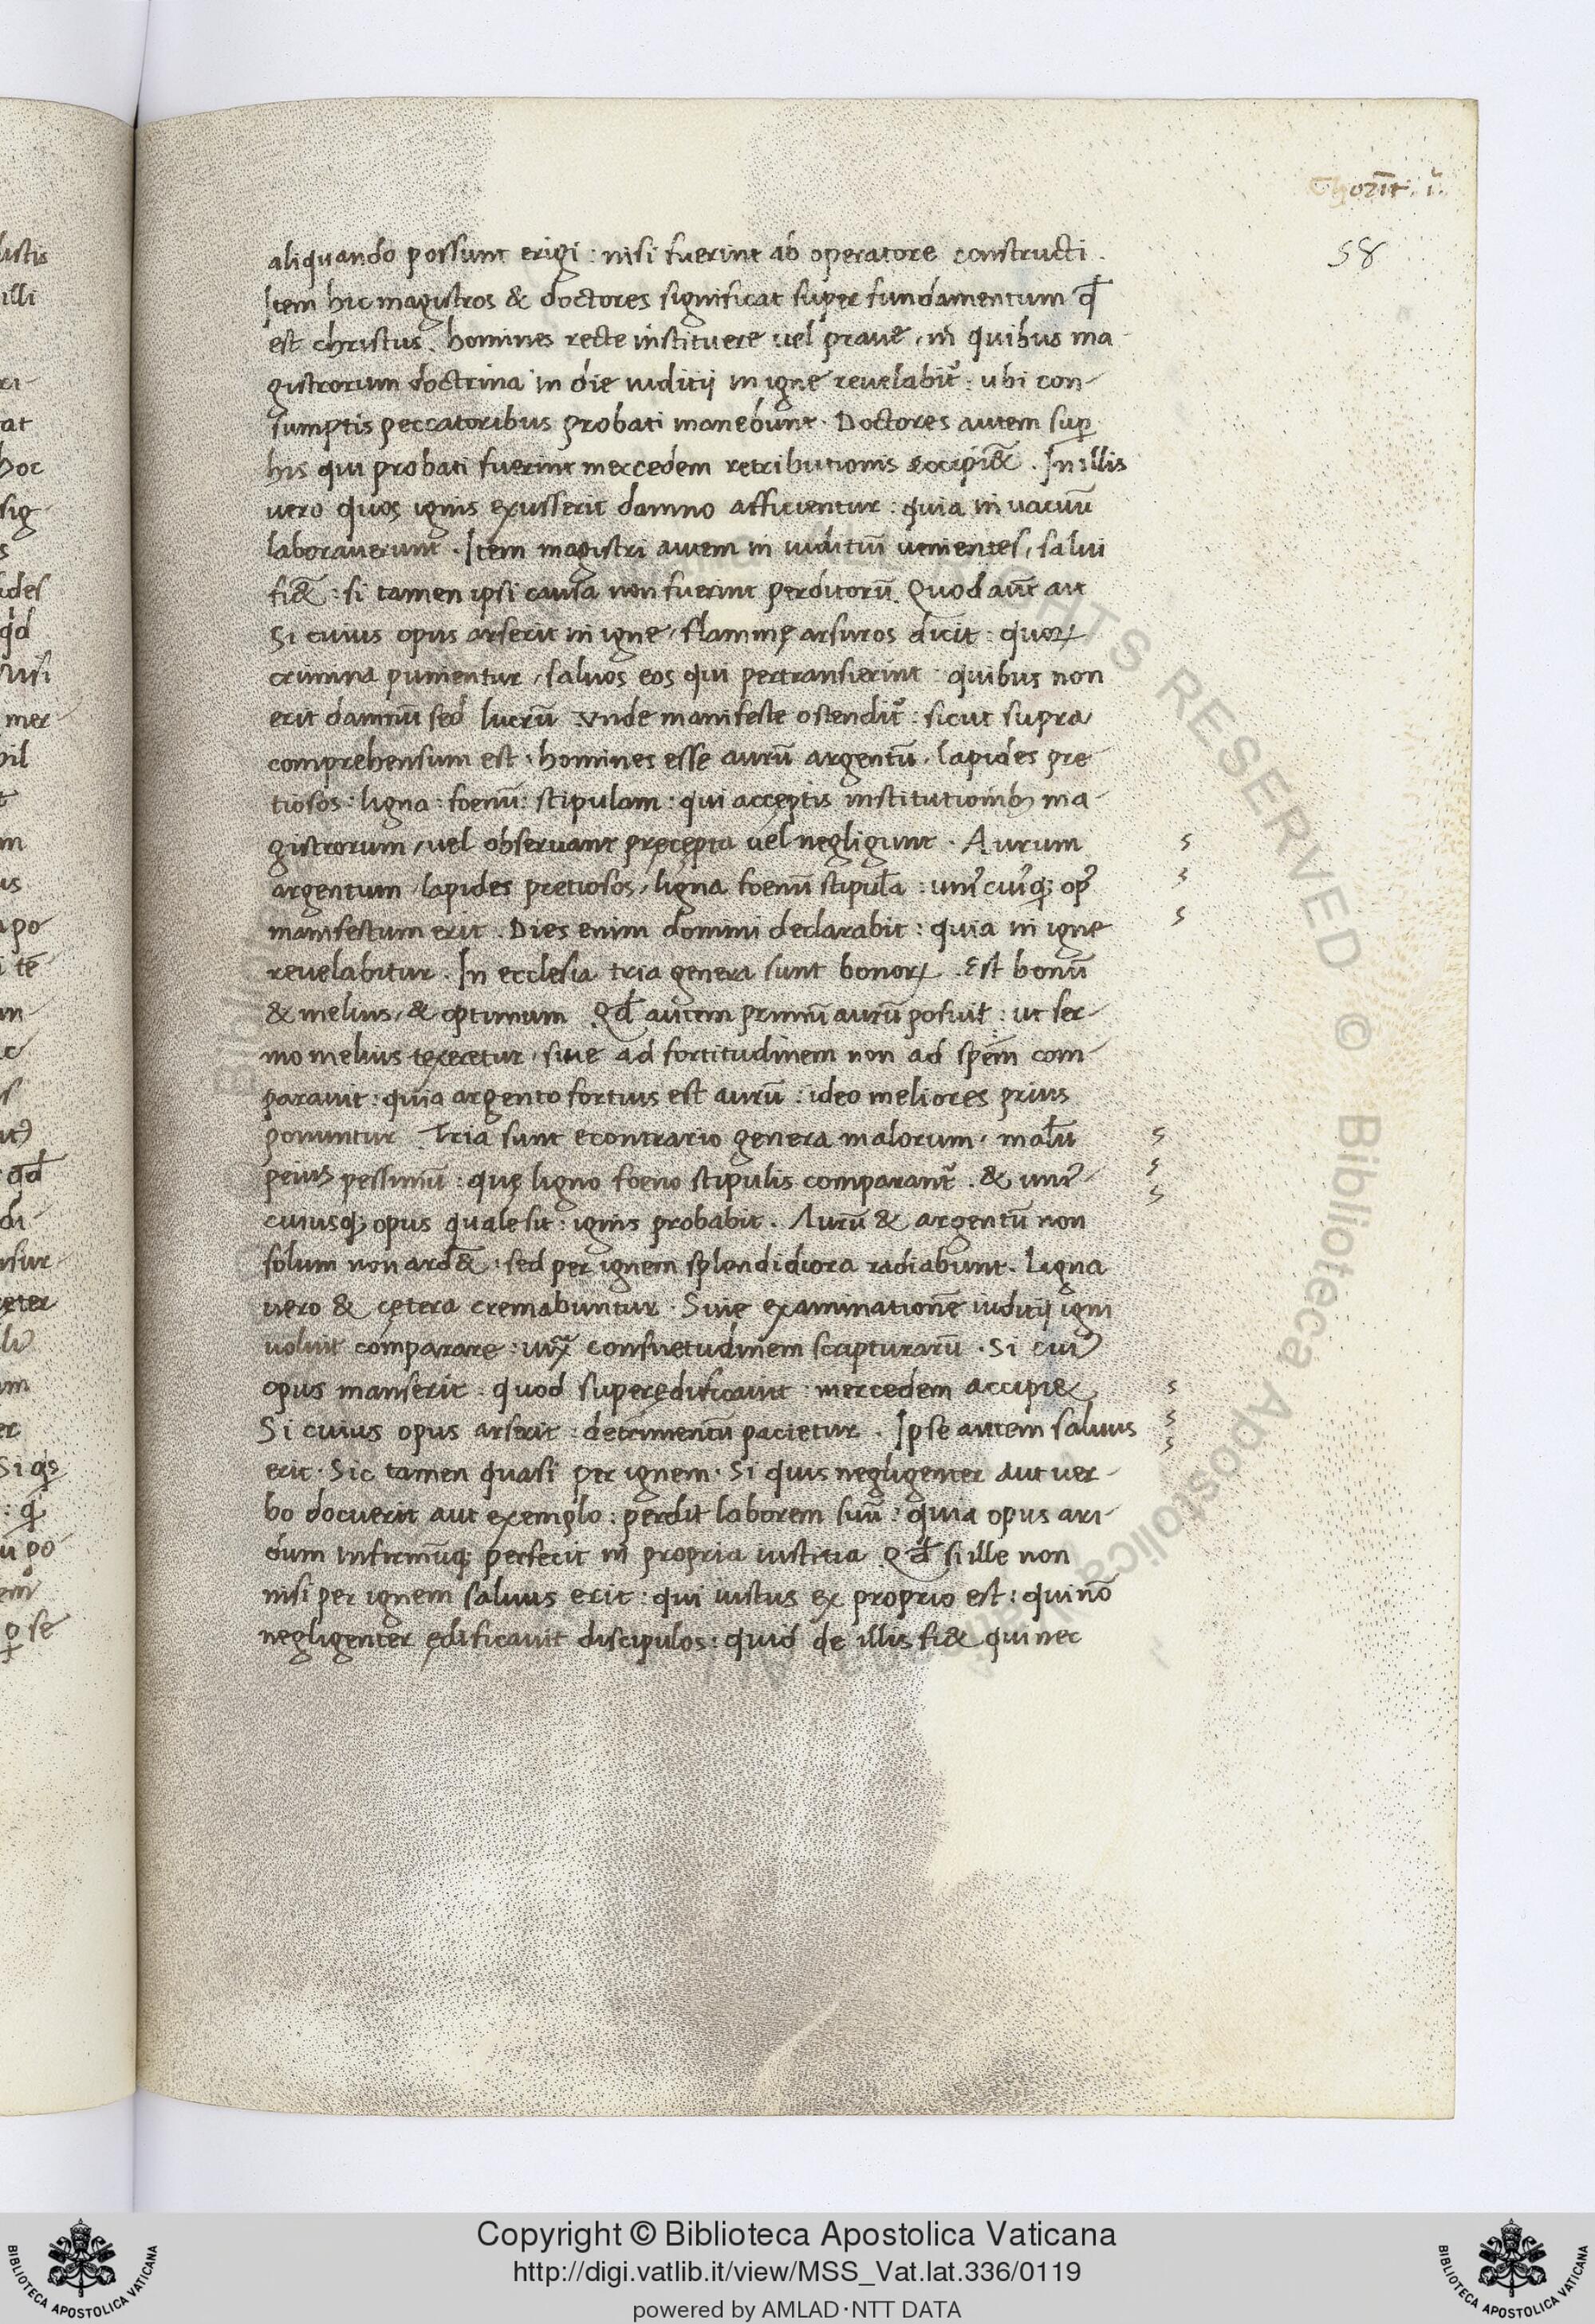 Chorint. i.
58
aliquando possunt erigi : nisi fuerint ab operatore constructi .
Item hic magistros & doctores significat super fundamentum qđ
est christus . homines recte instituere uel praue , in quibus ma-
gistrorum doctrina in die iuditij in igne reuelabit᷑ : ubi con-
sumptis peccatoribus probati manebunt . Doctores autem suꝑ
his qui probati fuerint mercedem retributionis accipi&̄ . In illis
uero quos ignis exusserit damno afficientur : quia in uacuū
laborauerunt . Item magistri autem in iuditiū uenientes , salui
fi&̄ : si tamen ipsi causa non fuerint perditorū . Quod aūt ait
Si cuius opus arserit in igne , flammę arsuros dicit : quoꝝ
crimina punientur , saluos eos qui pertransierint : quibus non
erit damnū sed lucrū . Vnde manifeste ostendit᷑ : sicut supra
comprehensum est : homines esse aurū argentū . lapides pre
tiosos : ligna : foenū : stipulam : qui acceptis institutionibꝫ ma-
gistrorum , uel obseruant pręcepta uel negligunt . Aurum
argentum , lapides pretiosos , ligna foenū stipulā : uniꝰcuiꝰqꝫ opꝰ
manifestum erit . Dies enim domini declarabit : quia in igne
reuelabitur . In ecclesia tria genera sunt bonoꝝ . Est bonū
& melius , & optimum Qđ autem primū aurū posuit : ut ser-
mo melius texeretur , siue ad fortitudinem non ad spēm com-
parauit : quia argento fortius est aurū : ideo meliores prius
ponuntur . Tria sunt econtrario genera malorum , malū
peius pessimū : quę ligno foeno stipulis comparant᷑ . & uniꝰ-
cuiusqꝫ opus quale sit : ignis probabit . Aurū & argentū non
solum non ard&̄ : sed per ignem splendidiora radiabunt . Ligna
uero & cętera cremabuntur . Siue examinationē iuditij igni
uoluit comparare : iuxᵃ consuetudinem scripturarū . Si cuiꝰ
opus manserit . quod superędificauit : mercedem accipi&
Si cuius opus arserit : detrimentū pacietur . Ipse autem saluus
erit . Sic tamen quasi per ignem . Si quis negligenter aut uer-
bo docuerit aut exemplo : perdit laborem suū : quia opus ari-
dum infirmūqꝫ perfecit in propria iustitia Qđ si ille non
nisi per ignem saluus erit : qui iustus ex proprio est : qui nō
negligenter ędificauit discipulos : quid de illis fi& qui nec
Copyright © Biblioteca Apostolica Vaticana
http://digi.vatlib.it/view/MSS_Vat.lat.336/0119
powered by AMLAD·NTT DATA